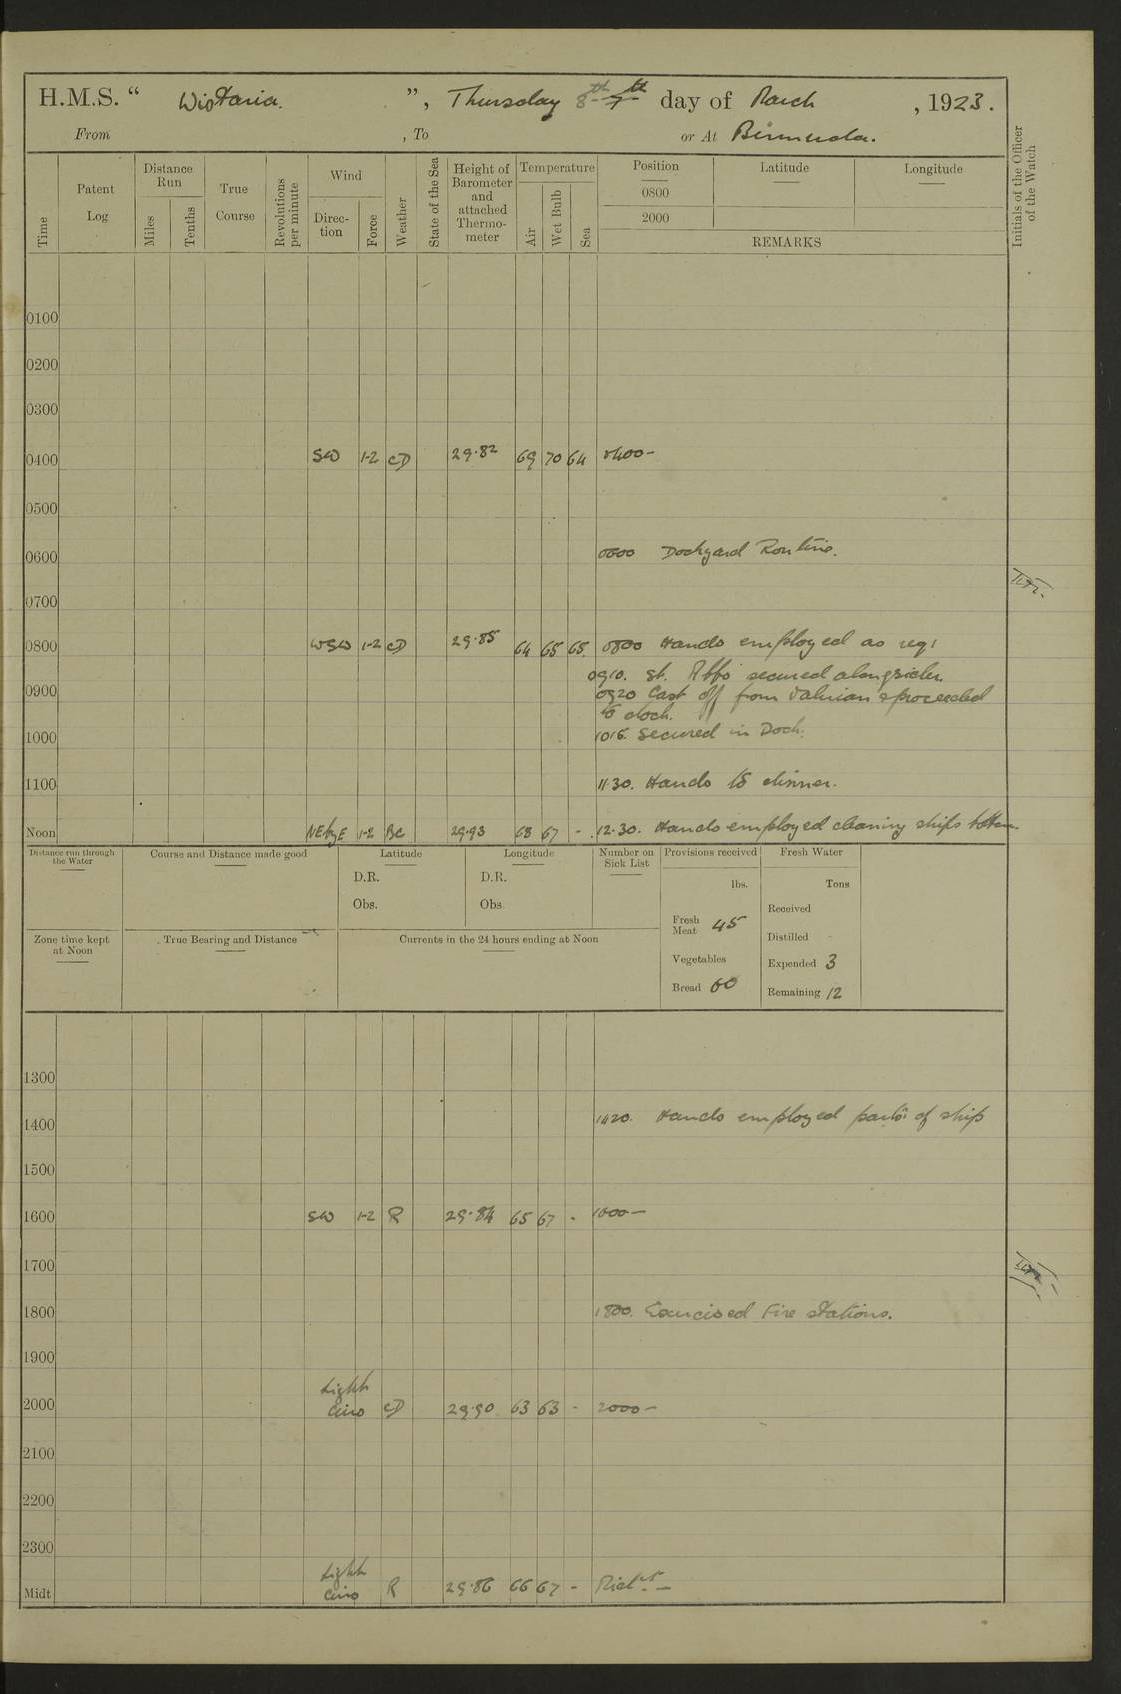 H.M.S. " Wistaria. ", Thursday 8th 7th day of March , 1923.
From , To or At Bermuda.
Time
Patent Log
Distance Run
Miles
Tenths
True Course
Revolutions per minute
Wind
Direc-tion
Force
Weather
State of the Sea
Height of Barometer and attached Thermo-meter
Temperature
Air
Wet Bulb
Sea
Position
0800
2000
Latitude
Longitude
REMARKS
Initials of the Officer of the Watch
0100
0200
0300
0400 SW 1-2 CD 29.82 69 70 64 0400 -
0500
0600 0600 Dockyard Routine.
0700
0800 WSW 1-2 CD 29.85 64 65 65. 0800 Hands employed as req:
0910. St. Abbs secured alongside.
0900 0920 Cast off from & proceeded
to dock.
1000 1015 Secured in Dock.
1100 11.30. Hands to dinner.
Noon NEbyE 1-2 BC 29.93 68 67 - 12.30. Hands employed cleaning ships bottom
Distance run through the Water
Course and Distance made good
Latitude
D.R.
Obs.
Longitude
D.R.
Obs.
Number on Sick List
Provisions received
lbs.
Fresh Meat 45
Vegetables
Bread 60
Fresh Water
Tons
Received
Distilled -
Expended 3
Remaining 12
Zone time kept at Noon
True Bearing and Distance
Currents in the 24 hours ending at Noon
1300
1400 1420. Hands employed parts of ship
1500
1600 SW 1-2 R 29.84 65 67 - 1600 -
1700
1800 1800. Exercised Fire Stations.
1900
2000 Light airs CD 29.90 63 63 - 2000 -
2100
2200
2300
Midt Light airs R 29.86 66 67 - Midt. -